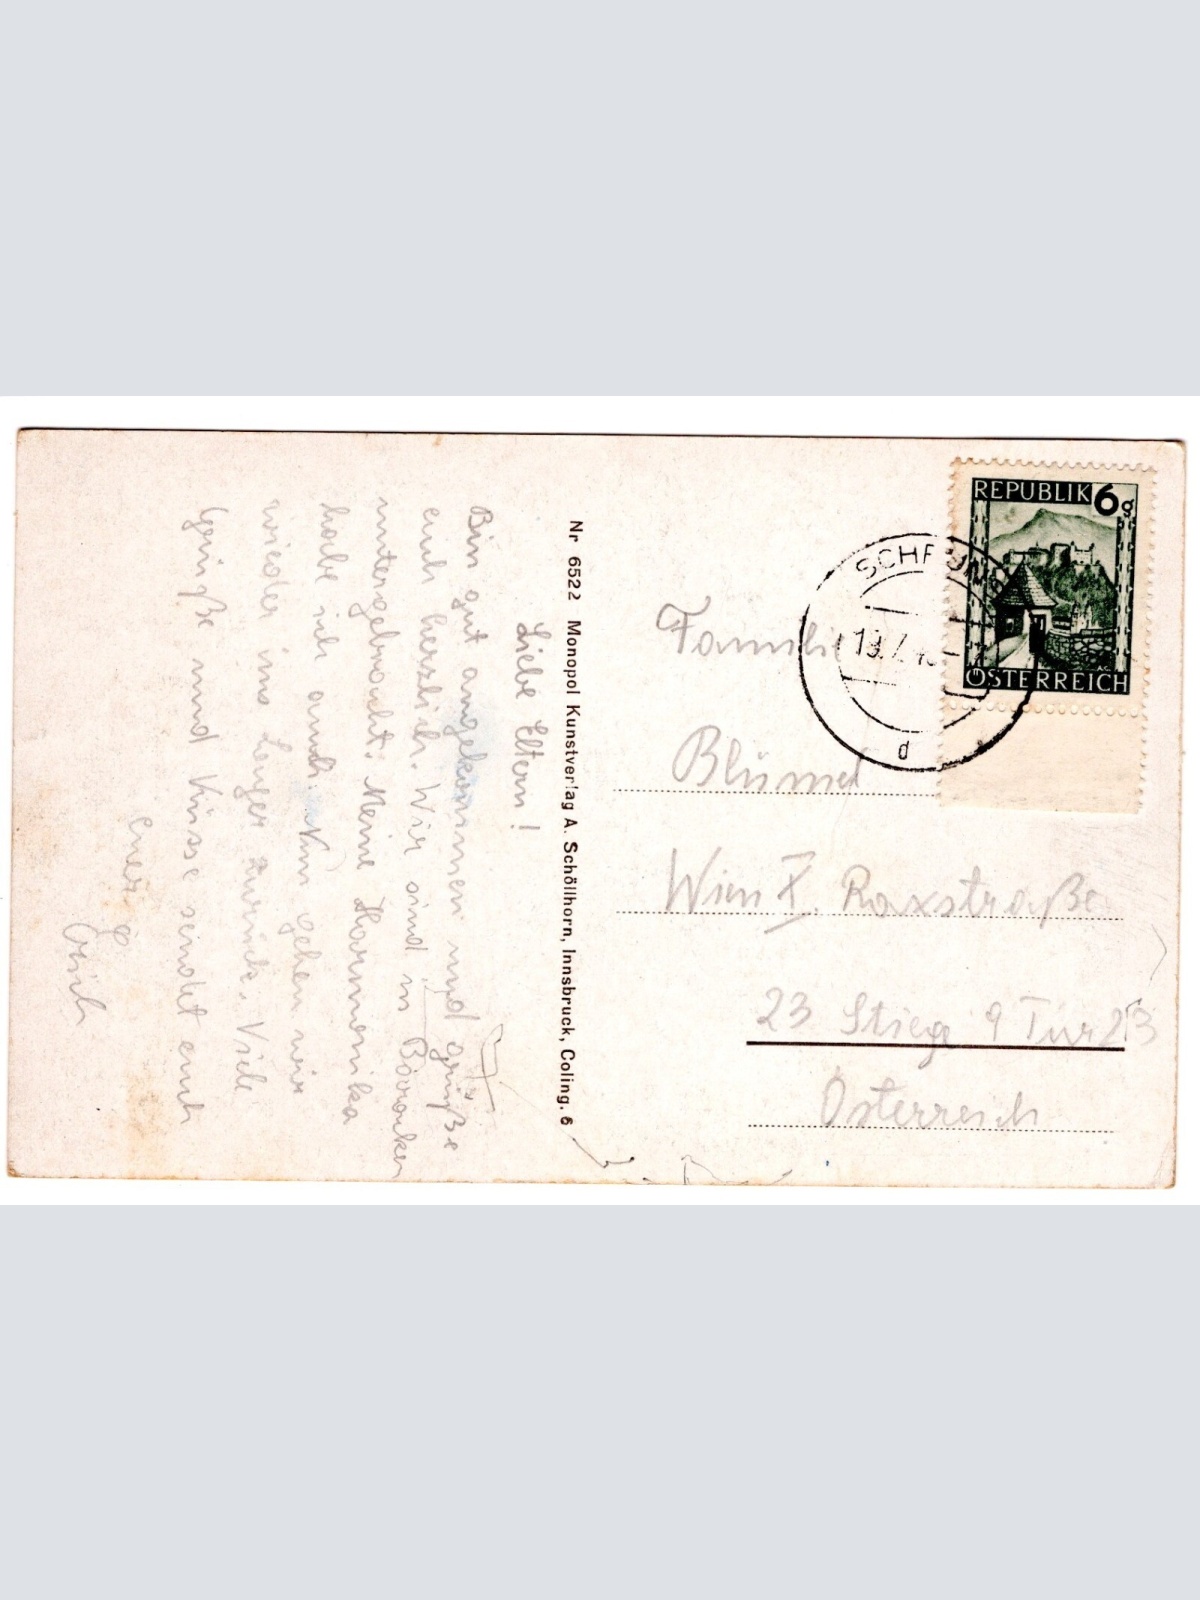 Liebe Eltern!
Bin gut angekommen und grüße
euch herzlich. Wir sind in Baracken
untergebracht. Meine Harmonika
habe ich auch. Nun gehen wir
wieder ins Lager zurück. Viele
Grüße und Küsse sendet euch
Euer
Erich
Nr 6522 Monopol Kunstverlag A. Schöllhorn, Innsbruck, Coling. 6
REPUBLIK 6g
ÖSTERREICH
SCHRUNS
d
Familie
Blümel
Wien X. Raxstraße
23 Stiege 9 Tür 23
Österreich